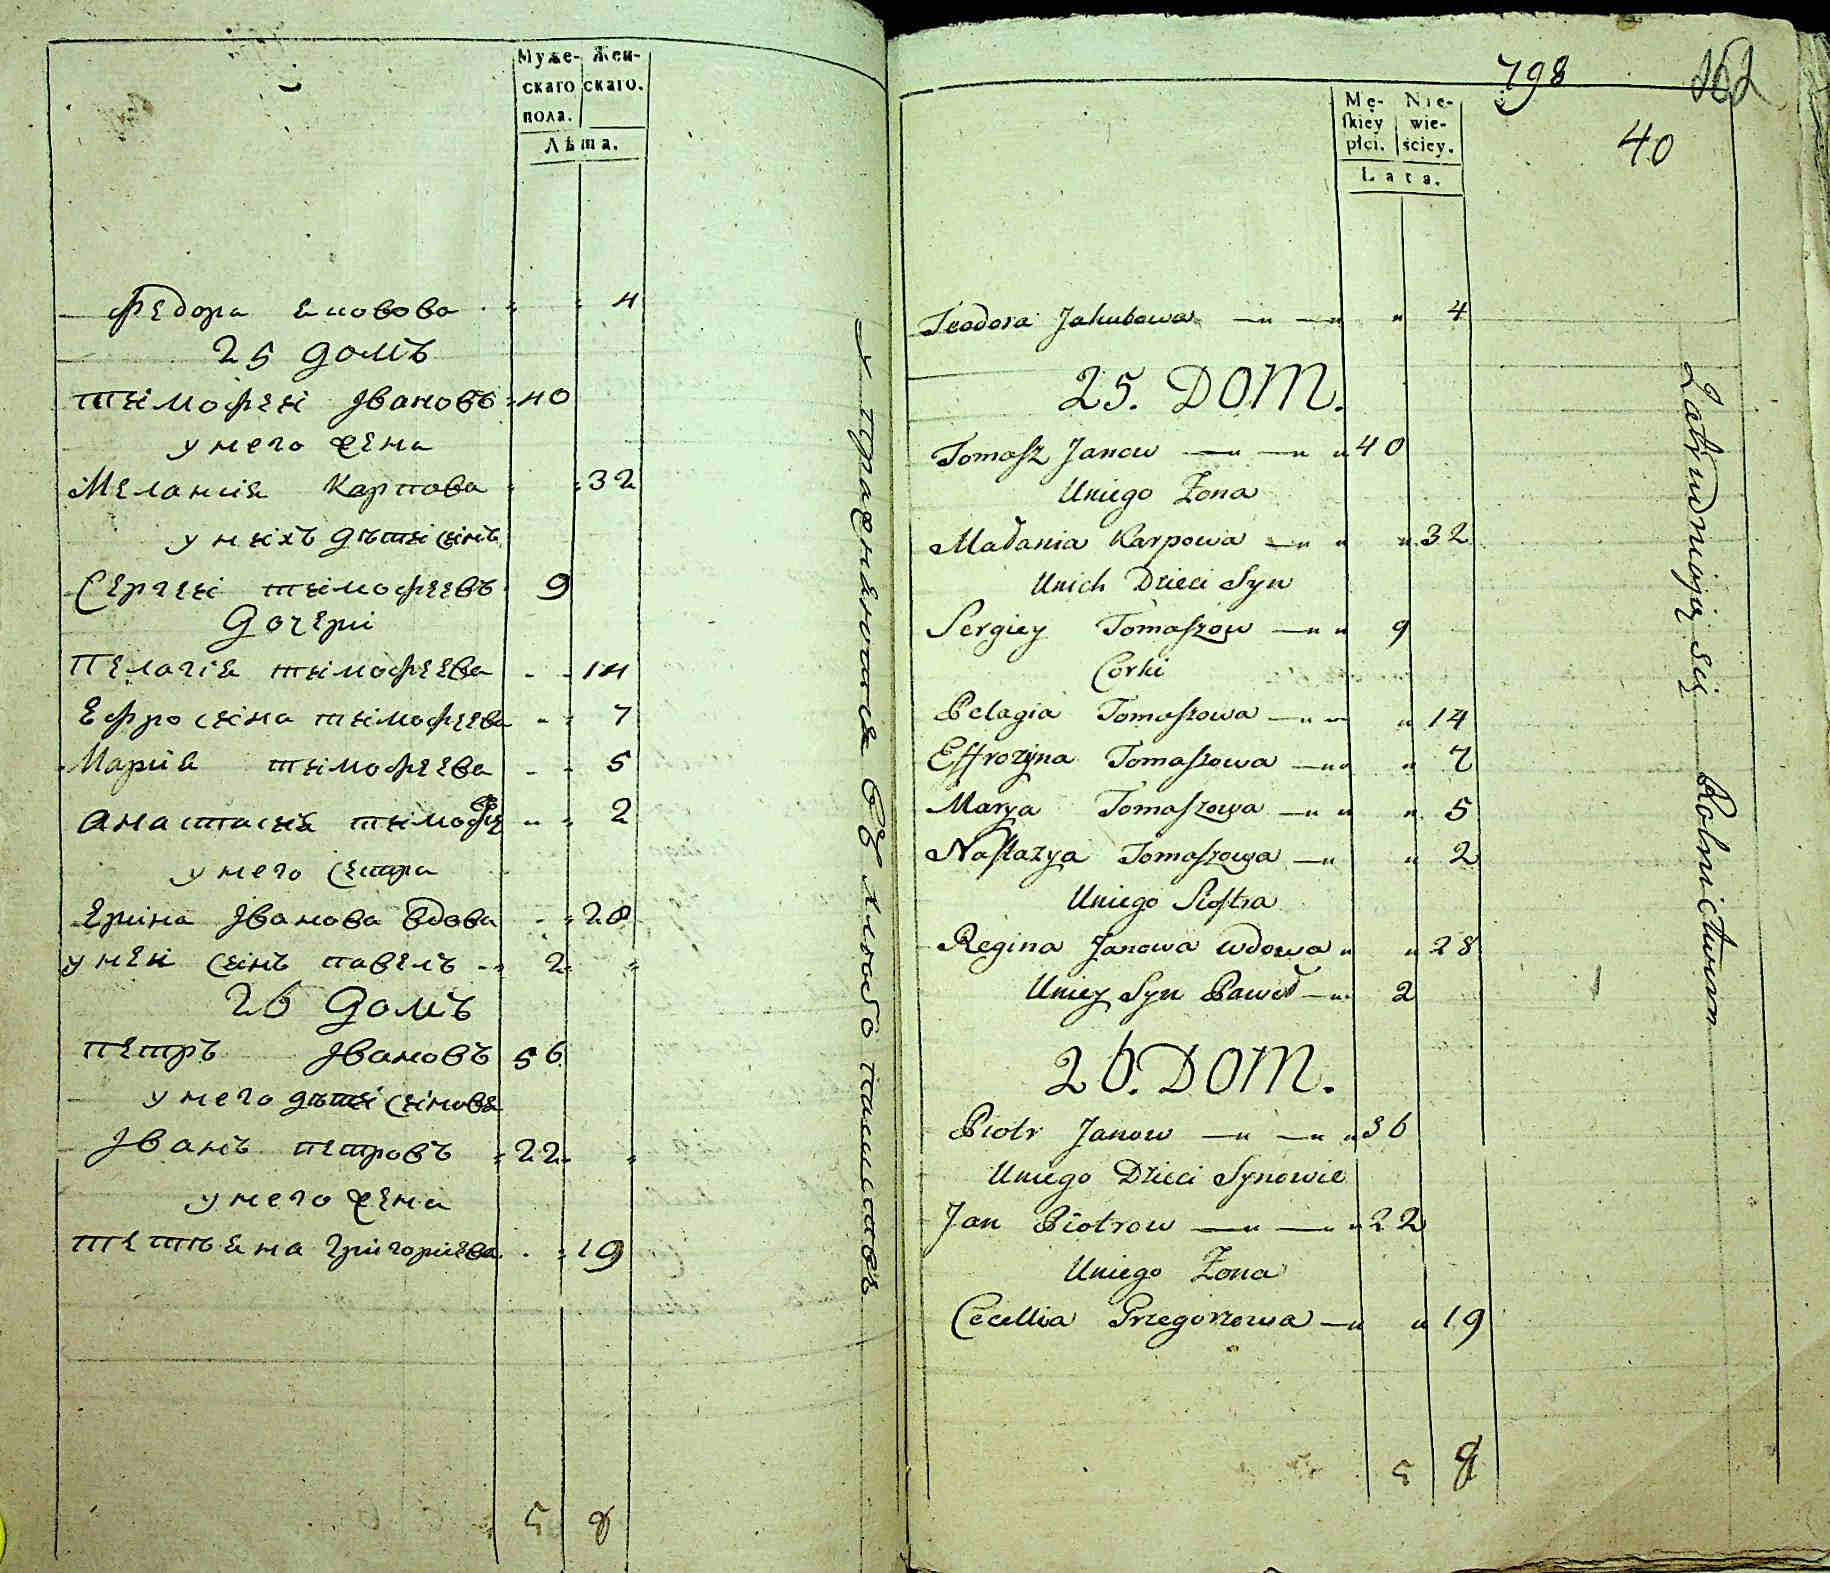 Муже- Жен-
скаго скаго.
пола.
Лѣта.
Федора еквова 4
25 домъ
тимофеи Iвановъ 40
у него жена
Мелания Карпова 32
у нихъ дѣти синъ
Сергеи тимофеевъ 9
Дочери
Пелагiя тимофеева 14
Ефросина тимофеева 7
Мария тимофеева 5
Анастасия тимофе 2
у него сестра
Ерина Iванова вдова 28
у неи синъ павелъ 2
26 домъ
петръ Iвановъ 56
у него дѣти синовя
Iванъ петровъ 22
у него жена
тетьяна григориева 19
5 8
798
162
40
Mę- Nie-
skiey wie-
płci. ściey.
Lata.
Teodora Jakubowa 4
25. DOM.
Tomasz Janow 40
Uniego Żona
Małania Karpowa 32
Unich Dzieci Syn
Sergiey Tomaszow 9
Corki
Pelagia Tomaszowa 14
Effrozyna Tomaszowa 7
Marya Tomaszowa 5
Nastazya Tomaszowa 2
Uniego Siostra
Regina Janowa wdowa 28
Uniey Syn Paweł 2
26. DOM.
Piotr Janow 56
Uniego Dzieci Synowie
Jan Piotrow 22
Uniego Żona
Cecellia Grzegorzowa 19
5 8
Zatrudniają się Rolnictwem